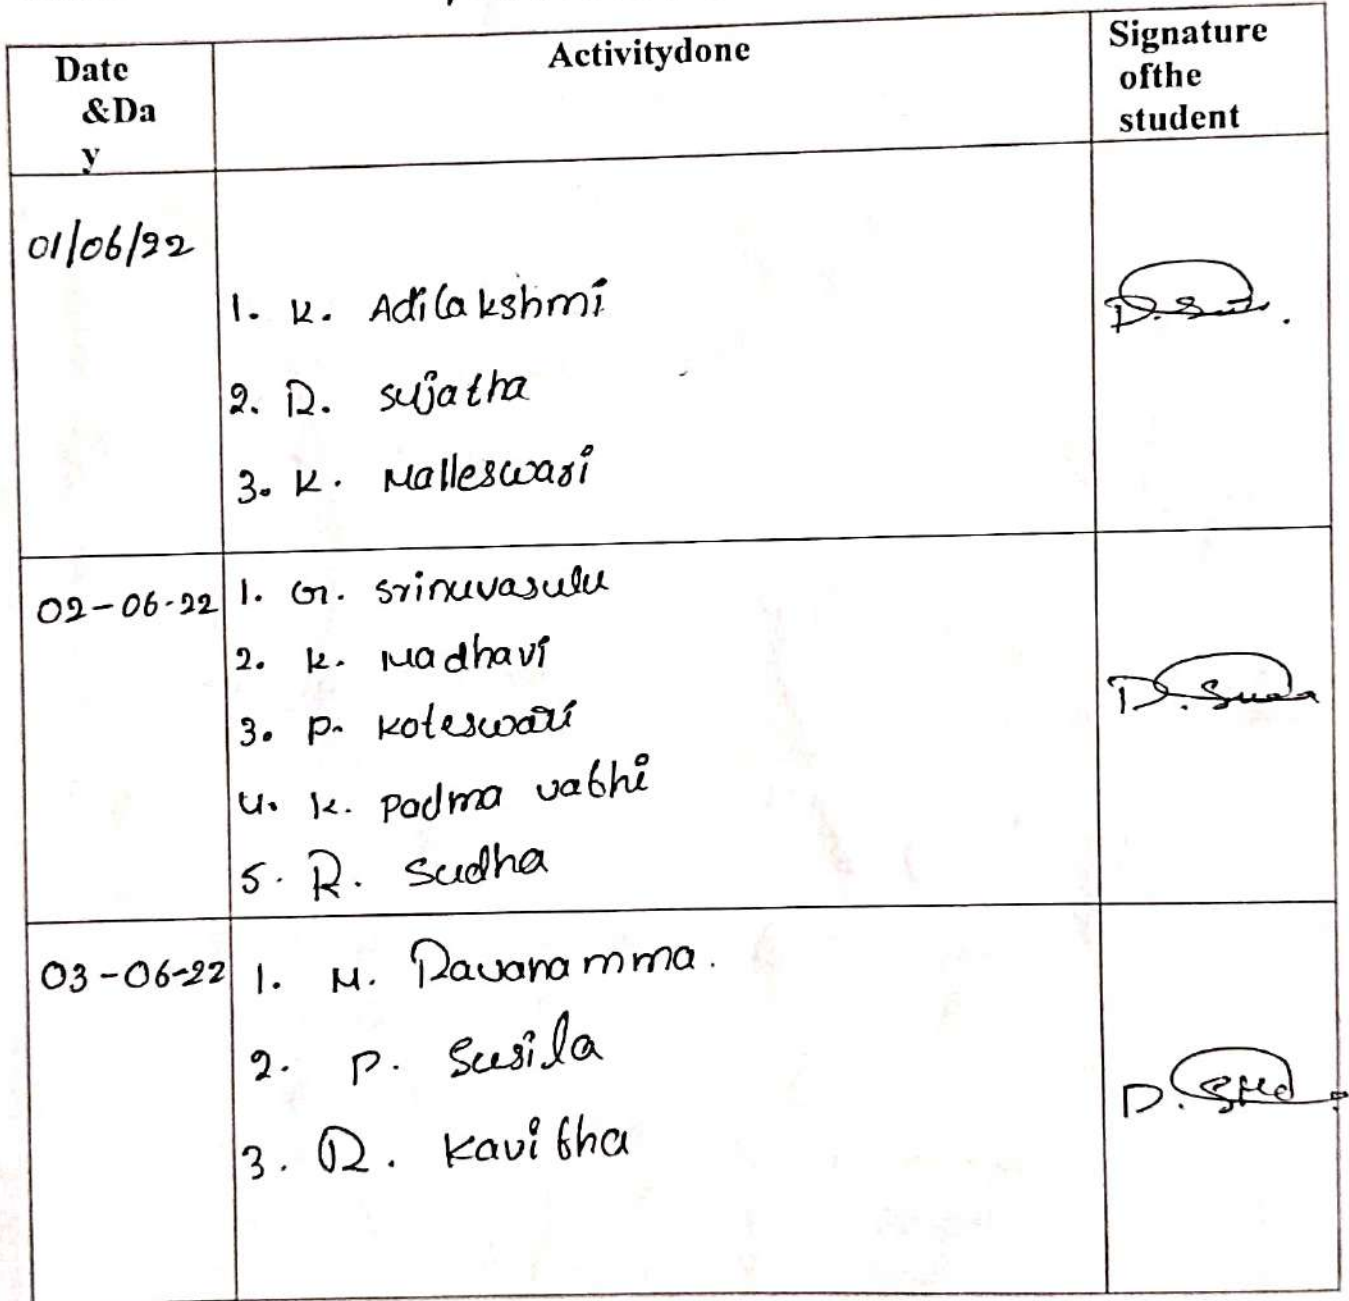 Date
&Da
y
Activitydone
Signature
ofthe
student
01/06/22
1. K. Adilakshmi
2. R. sujatha
3. K. Malleswari
02-06-22
1. G. srinuvasulu
2. K. Madhavi
3. P. Koteswari
4. K. Padma vathi
5. R. Sudha
03-06-22
1. M. Ravanamma.
2. P. Susila
3. R. Kavitha